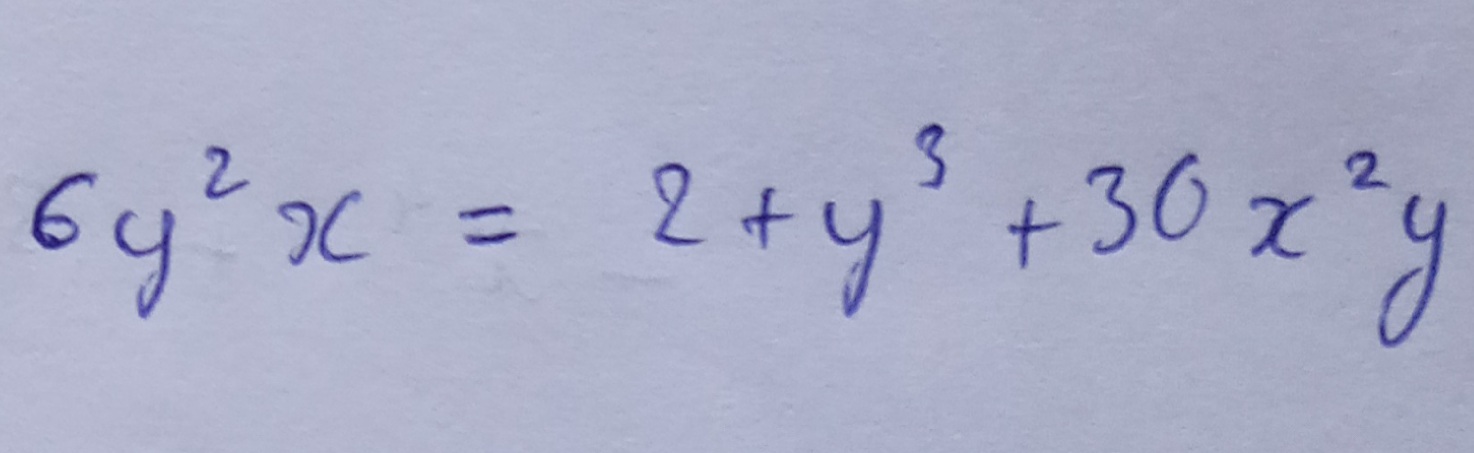 6y²x = 2 + y³ + 30x²y